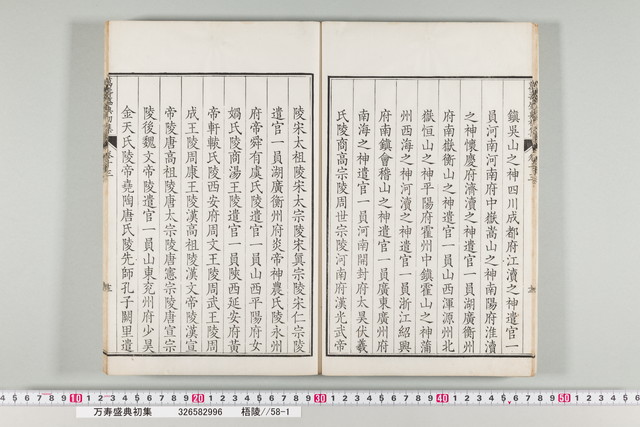 鎮吳山之神四川成都府江瀆之神遣官一
員河南河南府中嶽嵩山之神南陽府淮瀆
之神懷慶府濟瀆之神遣官一員湖廣衡州
府南嶽衡山之神遣官一員山西渾源州北
嶽恒山之神平陽府霍州中鎮霍山之神蒲
州西海之神河瀆之神遣官一員浙江紹興
府南鎮會稽山之神遣官一員廣東廣州府
南海之神遣官一員河南開封府太昊伏羲
氏陵商高宗陵周世宗陵河南府漢光武帝
陵宋太祖陵宋太宗陵宋眞宗陵宋仁宗陵
遣官一員湖廣衡州府炎帝神農氏陵永州
府帝舜有虞氏陵遣官一員山西平陽府女
媧氏陵商湯王陵遣官一員陝西延安府黃
帝軒轅氏陵西安府周文王陵周武王陵周
成王陵周康王陵漢高祖陵漢文帝陵漢宣
帝陵唐高祖陵唐太宗陵唐憲宗陵唐宣宗
陵後魏文帝陵遣官一員山東兖州府少昊
金天氏陵帝堯陶唐氏陵先師孔子闕里遣
0 1 2 3 4 5 6 7 8 9 10 1 2 3 4 5 6 7 8 9 20 1 2 3 4 5 6 7 8 9 30 1 2 3 4 5 6 7 8 9 40 1 2 3 4 5 6 7 8 9 50 1 2 3 4 5 6
万寿盛典初集 326582996 梧陵//58-1